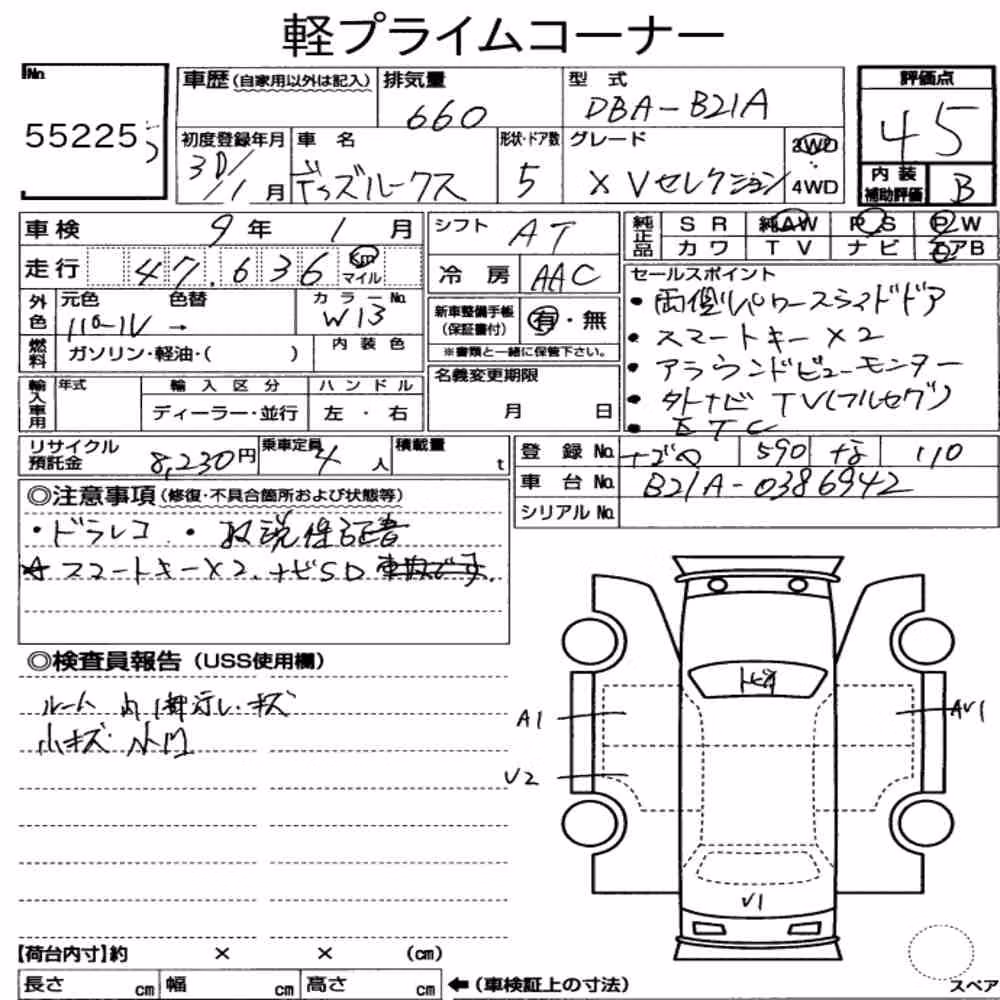 軽プライムコーナー
No. 55225
車歴(自家用以外は記入) 排気量 660 型式 DBA-B21A 評価点 45
初度登録年月 30/11月 車名 デイズルークス 形状・ドア数 5 グレード XVセレクション 2WD 4WD 内装補助評価 B
車検 9年 1月 シフト AT 純正品 SR 純AW PS PW
走行 47,636 Km マイル 冷房 AAC カワ TV ナビ エアB
外色 元色 色替 カラーNo. W13
パール →
新車整備手帳(保証書付) 有・無
※書類と一緒に保管下さい。
燃料 ガソリン・軽油・( ) 内装色
輸入車用 年式 輸入区分 ハンドル
ディーラー・並行 左・右
名義変更期限
月 日
セールスポイント
・両側パワースライドドア
・スマートキー×2
・アラウンドビューモニター
・外ナビ TV(フルセグ)
・ETC
リサイクル預託金 8,230円 乗車定員 4人 積載量 t
登録No. 590 な 110
車台No. B21A-0386942
シリアルNo.
◎注意事項(修復・不具合箇所および状態等)
・ドラレコ ・取説保証書
☆スマートキー×2、ナビSD 車内です.
◎検査員報告(USS使用欄)
ルーム内1部汚レ・キズ
小キズ 小凹
トビA
A1
AU1
U2
U1
【荷台内寸】約 × × (cm)
長さ cm 幅 cm 高さ cm ←(車検証上の寸法)
スペア